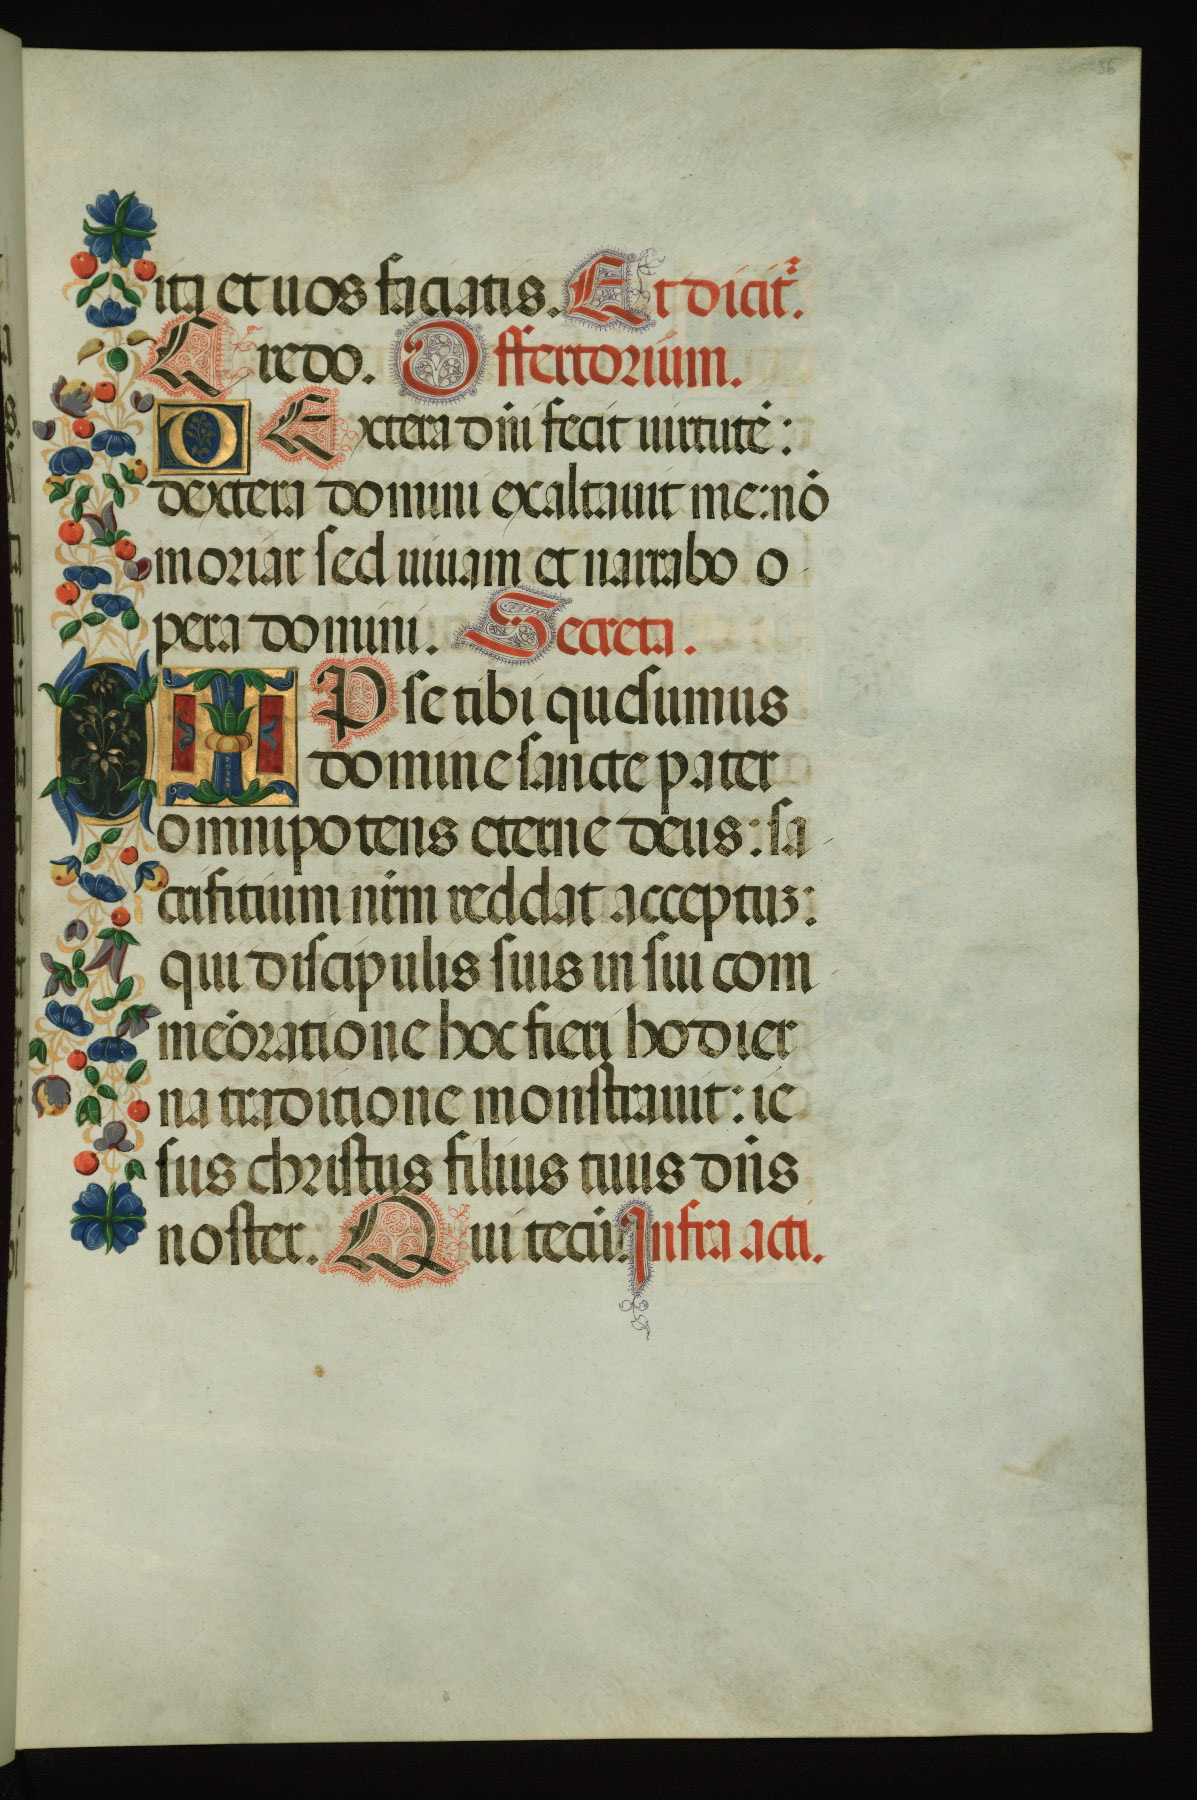 36
ita et uos faciatis. Et dicit᷑.
Credo. Offertorium.
DExtera dñi fecit uirtutē:
dextera domini exaltauit me: nō
moriar sed uiuam et narrabo o
pera domini. Secreta.
IPse tibi quesumus
domine sancte pater
omnipotens eterne deus: sa
crifitium nr̄m reddat acceptuʒ:
qui discipulis suis in sui com
meōratione hoc fieri hodier
na traditione monstrauit: ie
sus christus filius tuus dn̄s
noster. Qui tecū. Infra acti.